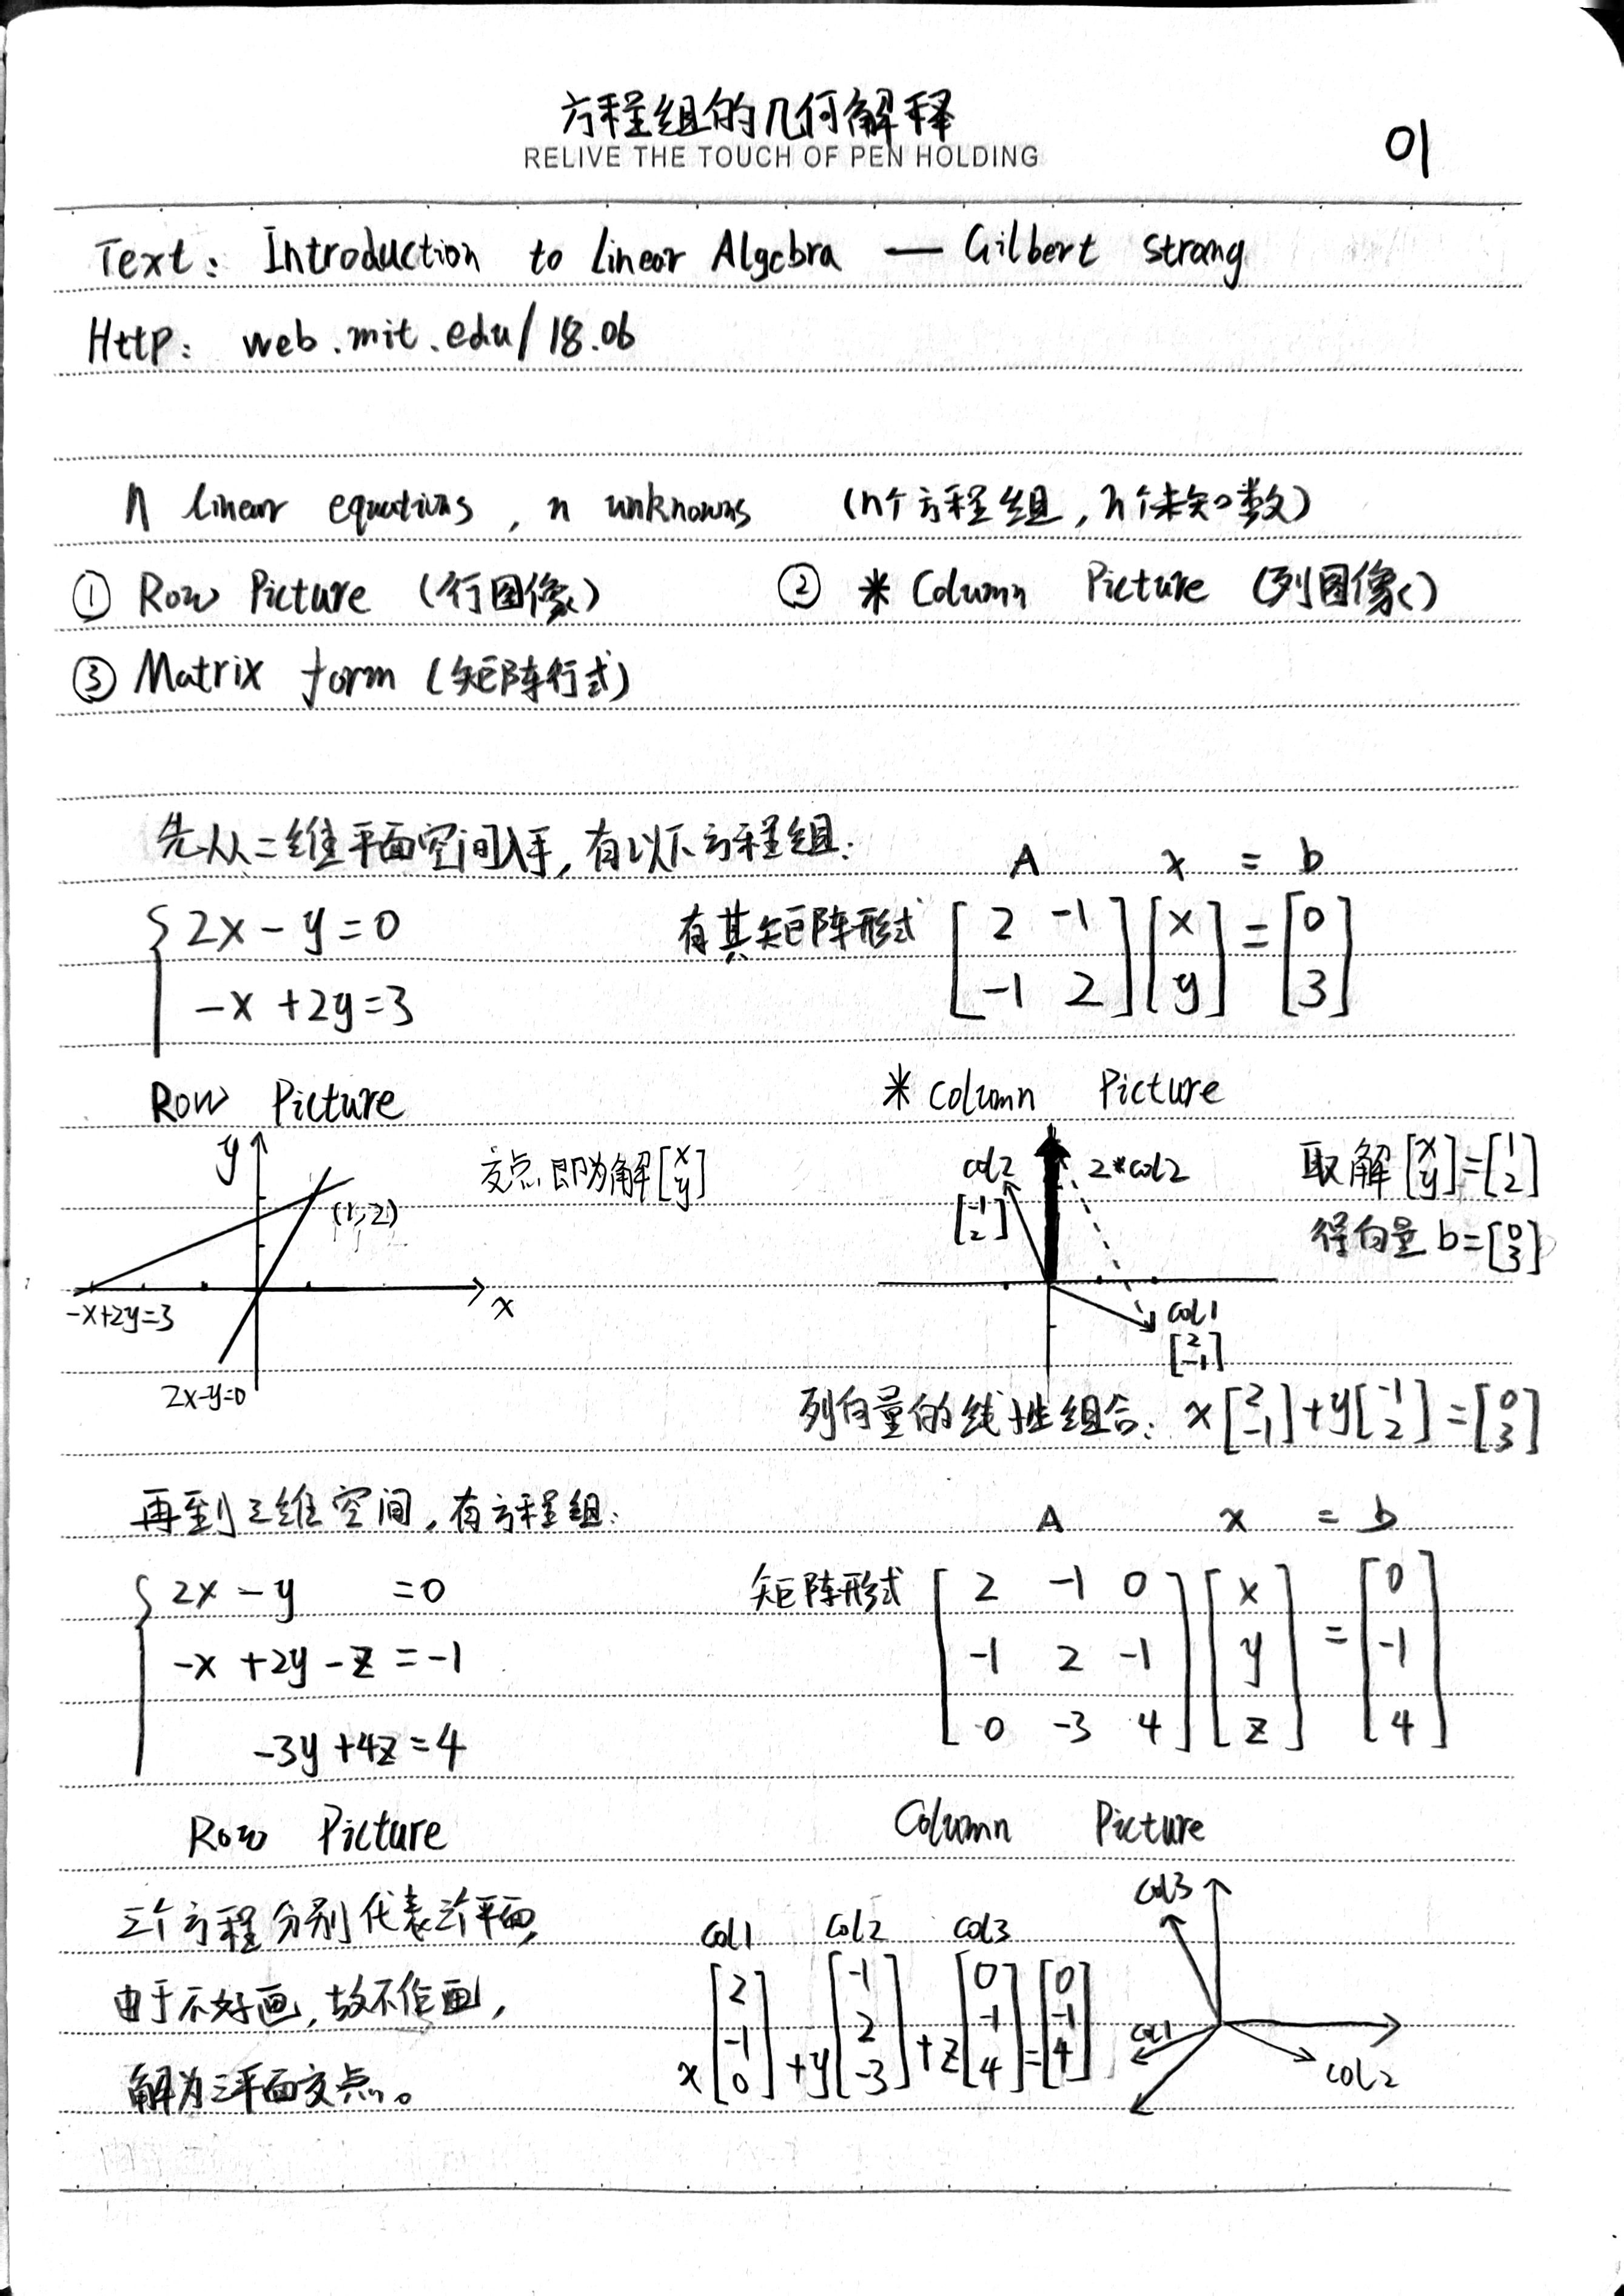 方程组的几何解释
RELIVE THE TOUCH OF PEN HOLDING
01
Text: Introduction to Linear Algebra — Gilbert Strang
Http: web.mit.edu/18.06
n linear equations, n unknowns (n个方程组,n个未知数)
① Row Picture (行图像) ② * Column Picture (列图像)
③ Matrix form (矩阵行式)
先从二维平面空间入手,有以下方程组:
A x = b
{ 2x - y = 0
-x + 2y = 3
有其矩阵形式 [2 -1; -1 2] [x; y] = [0; 3]
Row Picture
* Column Picture
y
x
(1,2)
-x+2y=3
2x-y=0
交点即为解 [x; y]
col2 [-1; 2]
2*col2
col1 [2; -1]
取解 [x; y] = [1; 2]
得向量 b = [0; 3]
列向量的线性组合: x [2; -1] + y [-1; 2] = [0; 3]
再到三维空间,有方程组:
A x = b
{ 2x - y = 0
-x + 2y - z = -1
-3y + 4z = 4
矩阵形式 [2 -1 0; -1 2 -1; 0 -3 4] [x; y; z] = [0; -1; 4]
Row Picture
Column Picture
三个方程分别代表三个平面,
由于不好画,故不作画,
解为三平面交点。
col1 col2 col3
x [2; -1; 0] + y [-1; 2; -3] + z [0; -1; 4] = [0; -1; 4]
col3
col1
col2